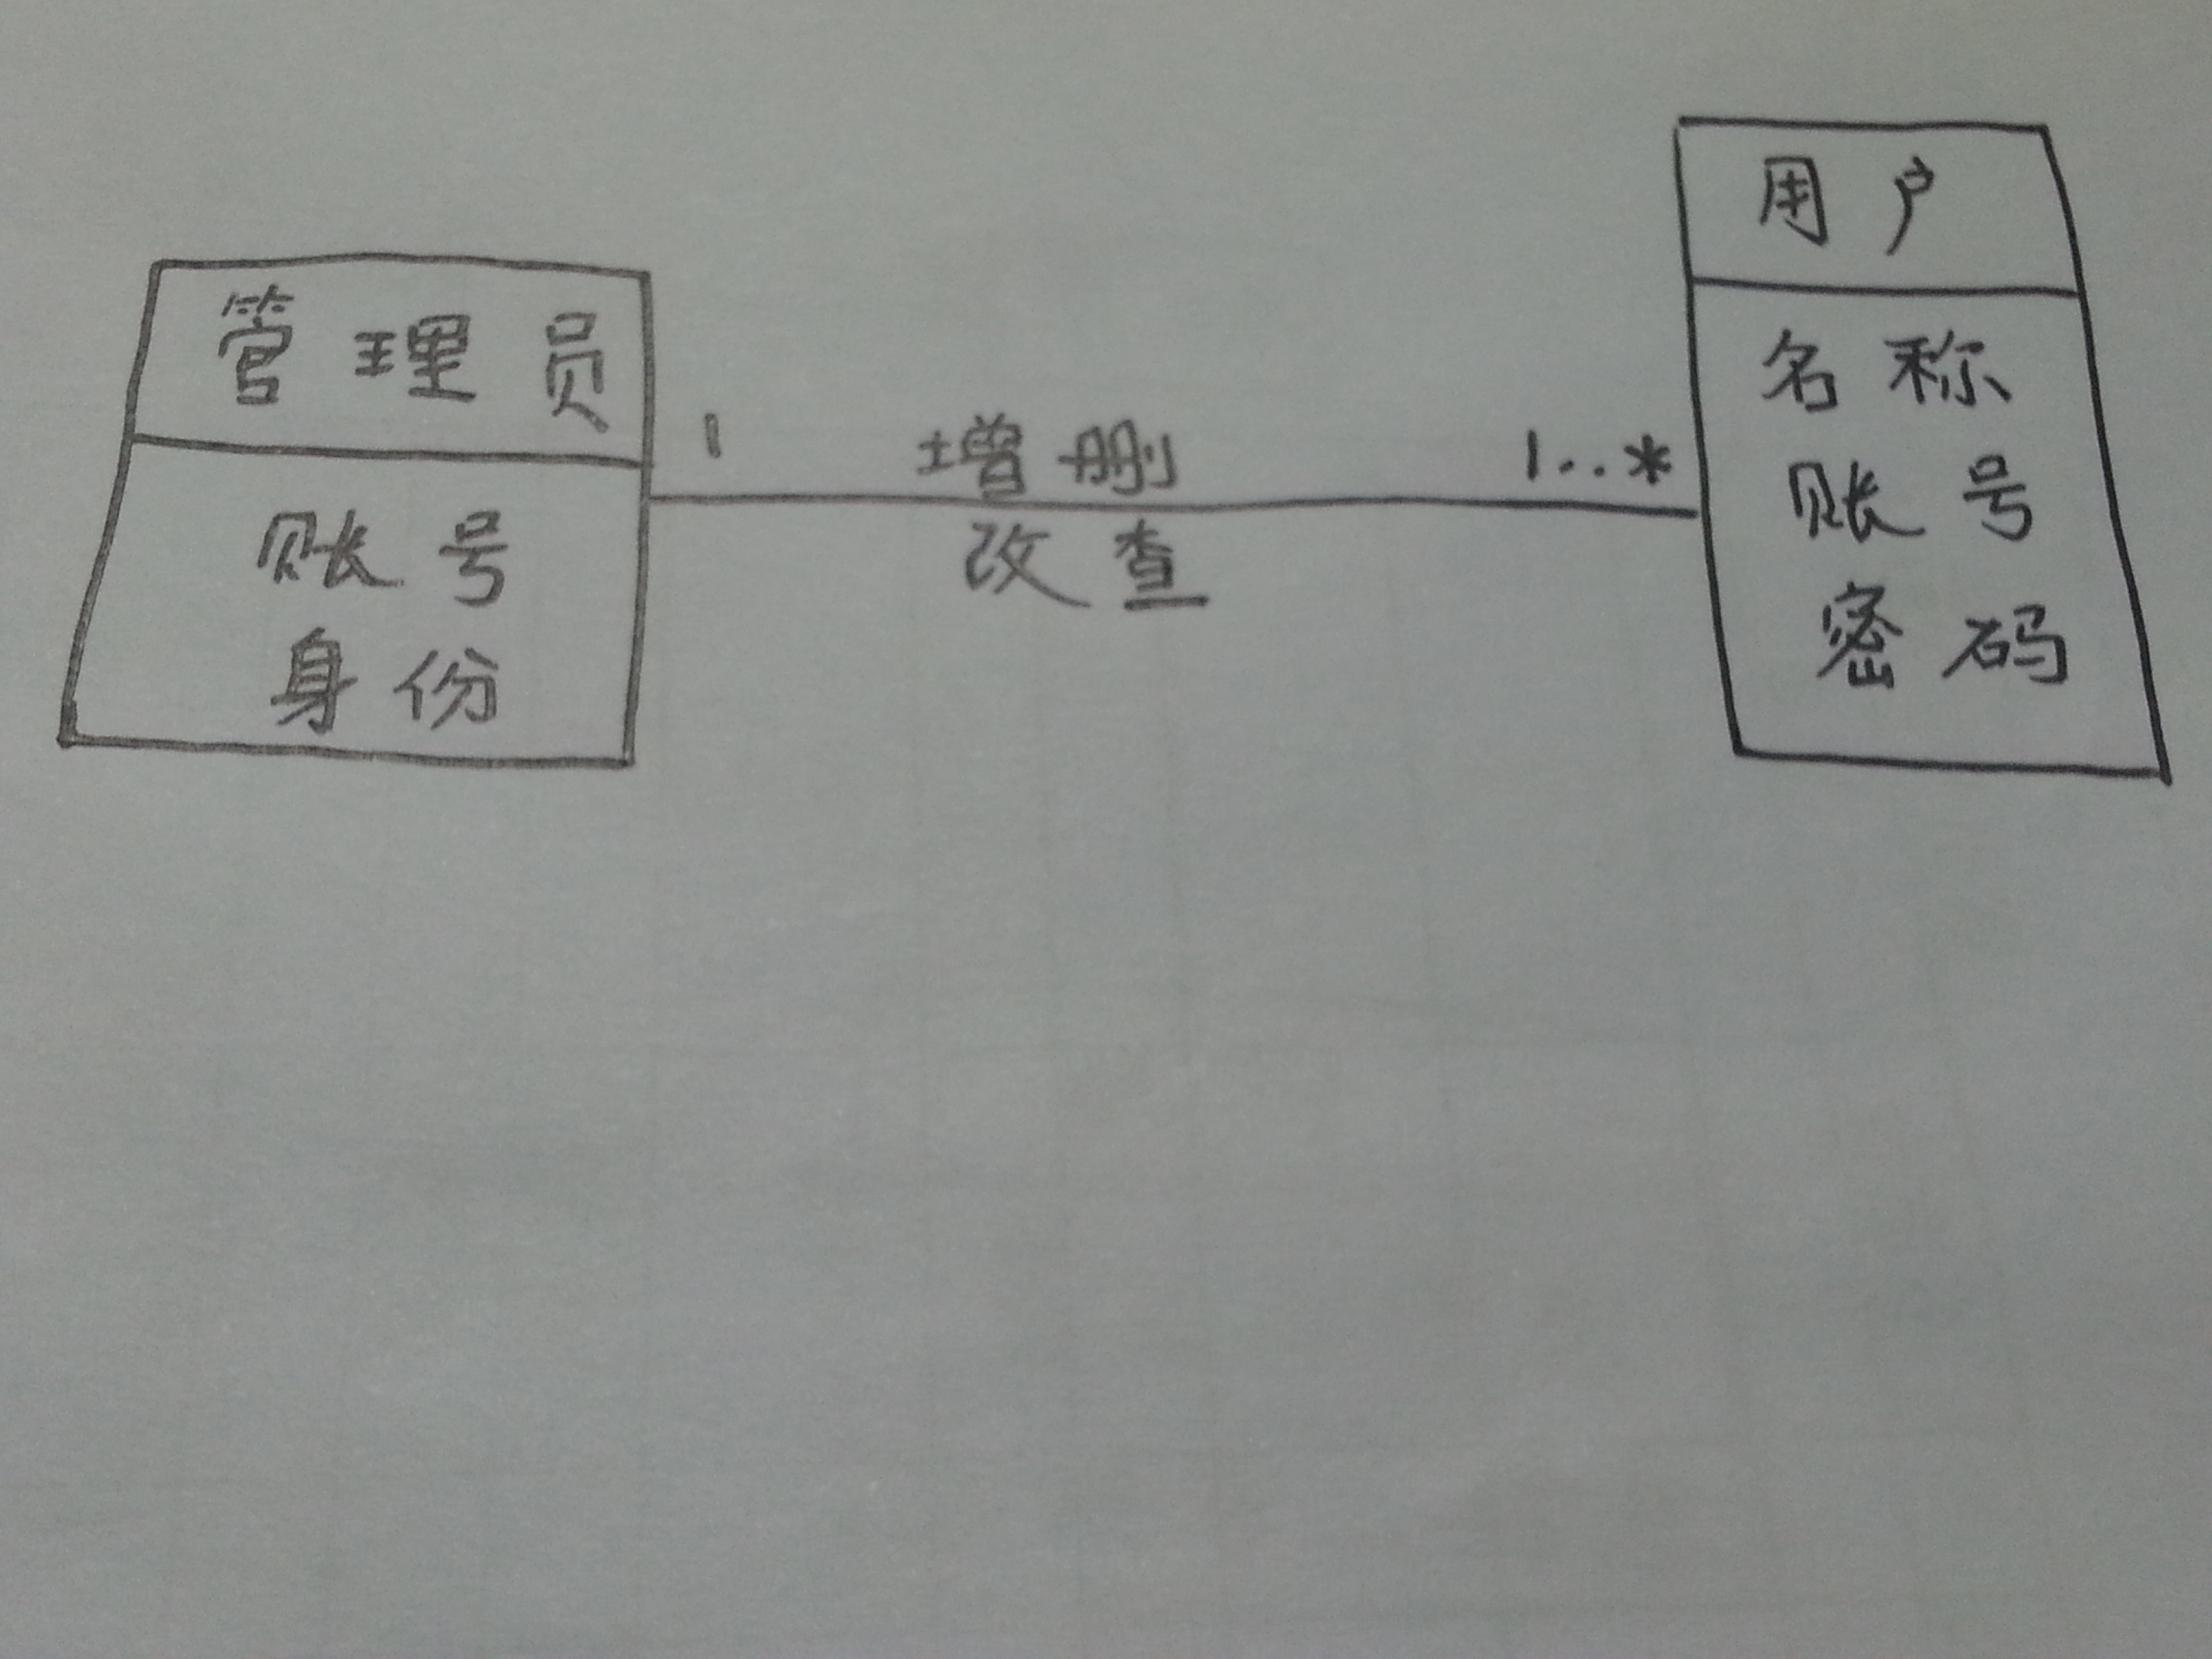 管理员
账号
身份
1
增删
改查
1..*
用户
名称
账号
密码